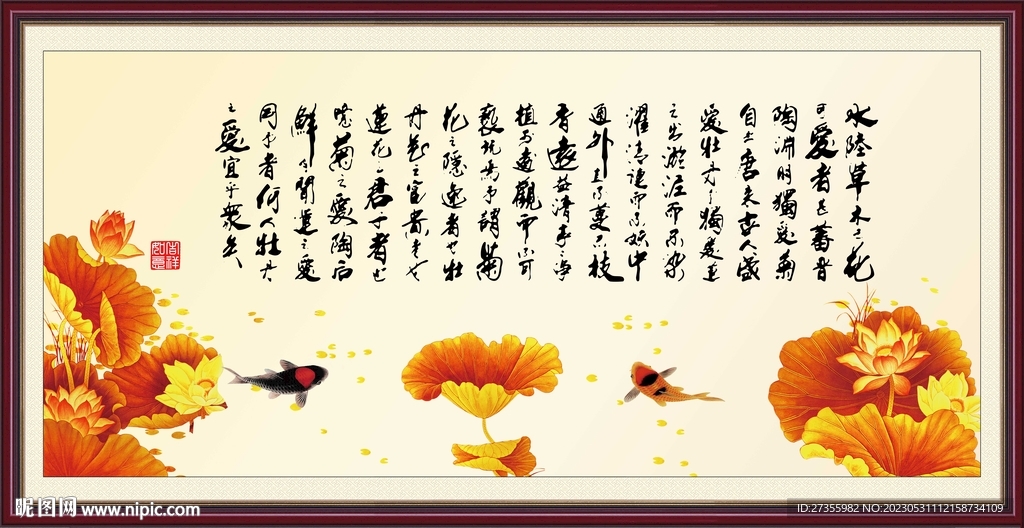 水陸草木之花
可愛者甚蕃晋
陶淵明獨愛菊
自李唐来世人盛
愛牡丹予獨愛蓮
之出淤泥而不染
濯清漣而不妖中
通外直不蔓不枝
香遠益清亭亭净
植可遠觀而不可
褻玩焉予謂菊
花之隱逸者也牡
丹花之富貴者也
蓮花之君子者也
噫菊之愛陶后
鮮有聞蓮之愛
同予者何人牡丹
之愛宜乎衆矣
吉祥
如意
昵图网 www.nipic.com
ID:27355982 NO:20230531112158734109